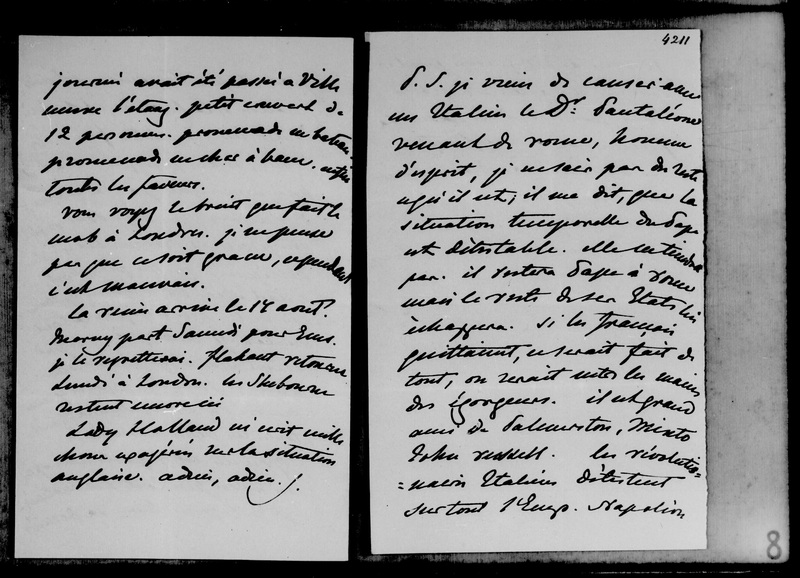 journée avait été passée à Ville
neuve l'étang. petit couvert de
12 personnes. promenade en bateau
promenade en char à banc. enfin
toutes les faveurs.
vous voyez le bruit que fait le
mob à Londres. je ne pense
pas que ce soit grave, cependant
c'est mauvais.
La reine arrive le 17 aout.
Morny part Samedi pour Ems.
je le regretterai. Flahaut retourne
Lundi à Londres. les Shelburne
restent encore ici
Lady Holland m'écrit mille
choses exagérées sur la situation
anglaise. adieu, adieu.
4211
P. S. je viens de causer avec
un Italien le Dr. Pantaléone
venant de rome, homme
d'esprit, je ne sais pas du reste
ce qu'il est; il me dit, que la
situation temporelle du Pape
est détestable. elle ne tiendra
pas. il restera Pape à rome
mais le reste de ses Etats lui
échappera. Si les français
quittaient, ce serait fait de
tout, on serait entre les mains
des égorgeurs. il est grand
ami de Palmerston, Minto
John russell. les révolution=
=naires Italiens détestent
surtout l'Emp. Napoléon
8